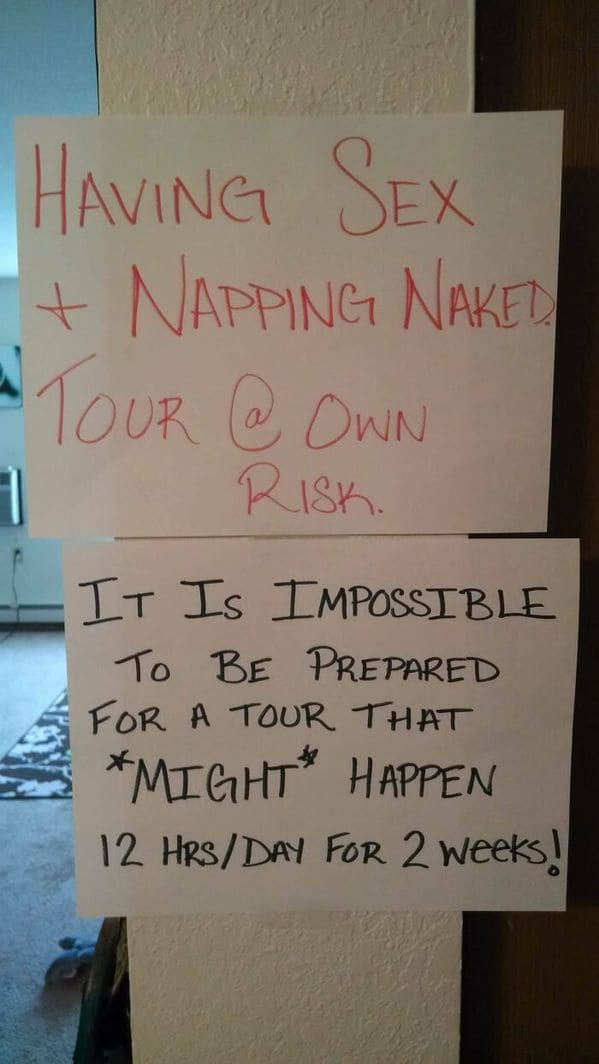 HAVING SEX
+ NAPPING NAKED.
TOUR @ OWN
RISK.
IT IS IMPOSSIBLE
TO BE PREPARED
FOR A TOUR THAT
*MIGHT* HAPPEN
12 HRS/DAY FOR 2 weeks!